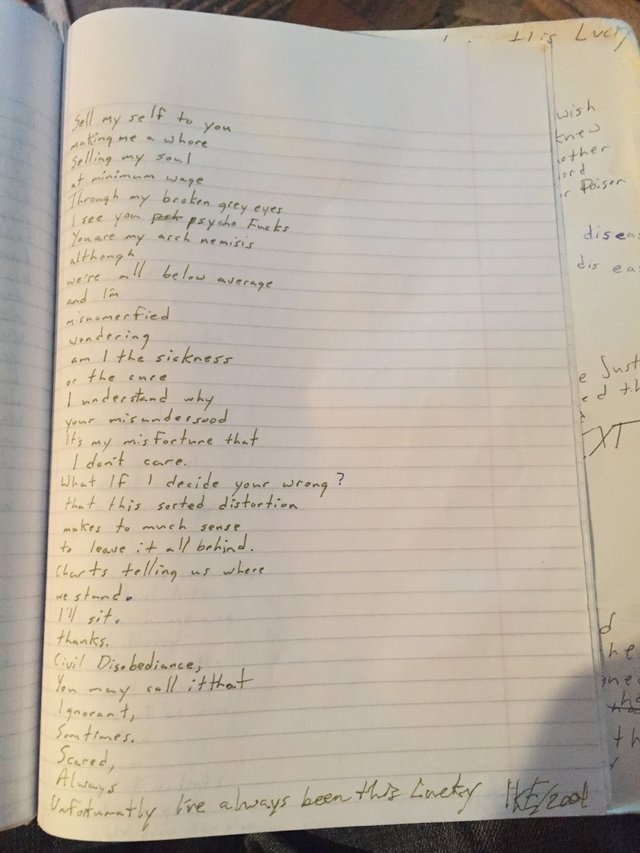 Sell my self to you
making me a whore
Selling my soul
at minimum wage
Through my broken grey eyes
I see you psycho Fucks
You are my arch nemisis
although
we're all below average
and I'm
misnumerfied
wondering
am I the sickness
or the cure
I understand why
your misundersood
Its my misfortune that
I don't care.
What If I decide your wrong?
that this sorted distortion
makes to much sense
to leave it all behind.
Charts telling us where
we stand.
I'll sit.
thanks.
Civil Disobediance,
You may call it that
Ignorant,
Somtimes.
Scared,
Always
Unfortunatly I've always been this Lucky
this Lucky
wish
knew
other
ord
or Poison
diseas
dis eas
e Just
ed th
XT
d
he
th